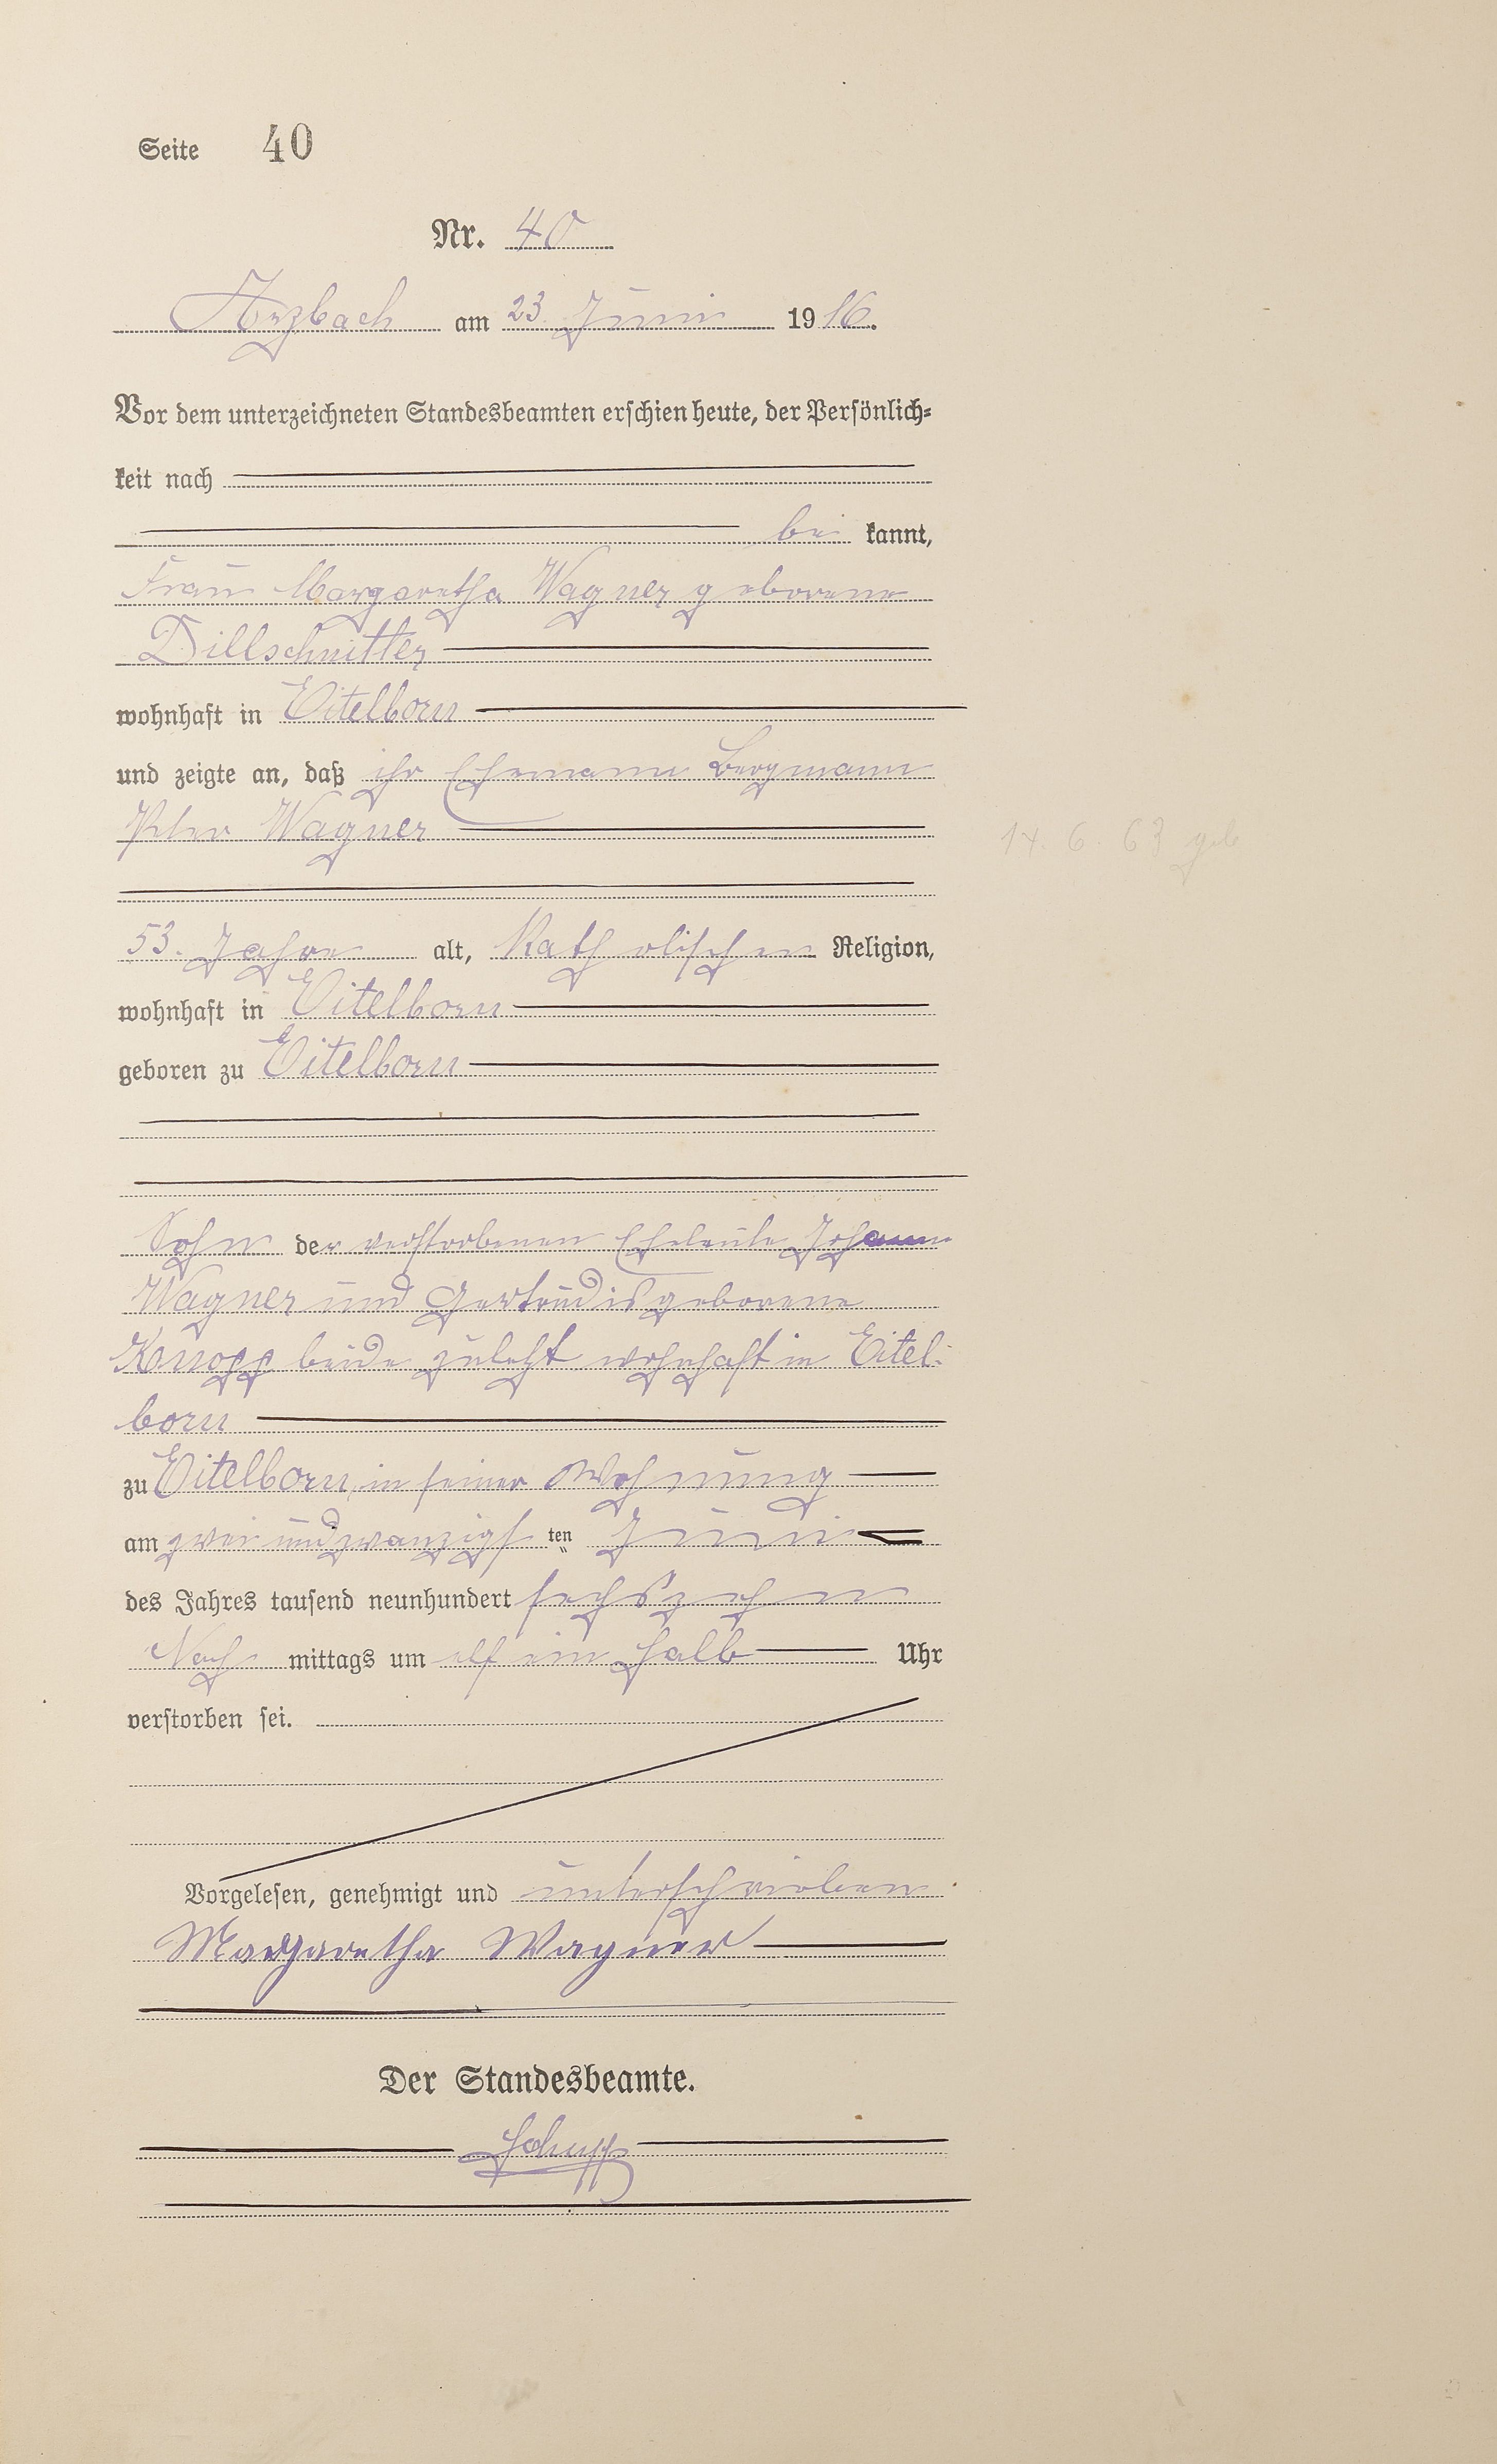 Seite 40
Nr. 40
Arzbach am 23. Juni 1916.
Vor dem unterzeichneten Standesbeamten erschien heute, der Persönlich-
keit nach
be kannt,
Frau Margaretha Wagner geborene
Dillschnitter
wohnhaft in Eitelborn
und zeigte an, daß ihr Ehemann Bergmann
Peter Wagner
14. 6. 63 geb
53. Jahre alt, Katholischen Religion,
wohnhaft in Eitelborn
geboren zu Eitelborn
Sohn der verstorbenen Eheleute Johann
Wagner und Gertrudis geborene
Knopp beide zuletzt wohnhaft in Eitel-
born
zu Eitelborn, in seiner Wohnung
am zwei und zwanzigsten Juni
des Jahres tausend neunhundert sechszehn
Nach mittags um elf ein halb Uhr
verstorben sei.
Vorgelesen, genehmigt und unterschrieben.
Margaretha Wagner
Der Standesbeamte.
Schupp